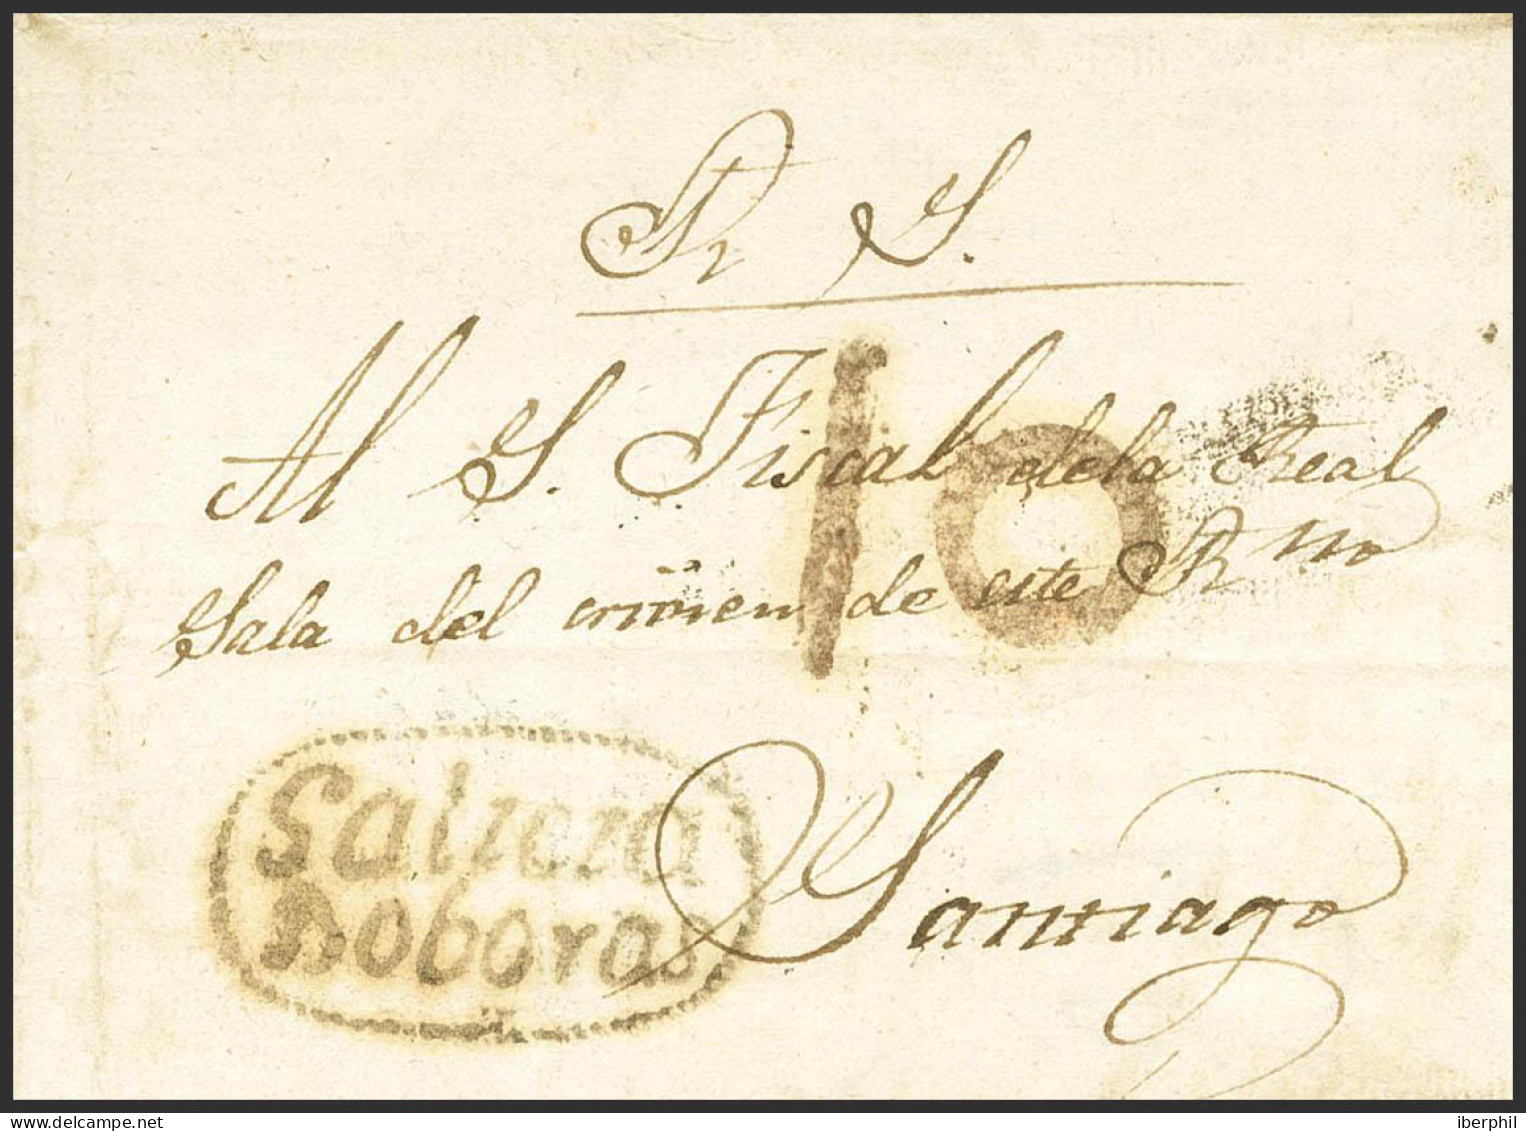 Rl S.
Al S. Fiscal dela Real
Sala del crimen de este Rno
10
Galicia
Boboras
Santiago
delcampe.net
iberphil